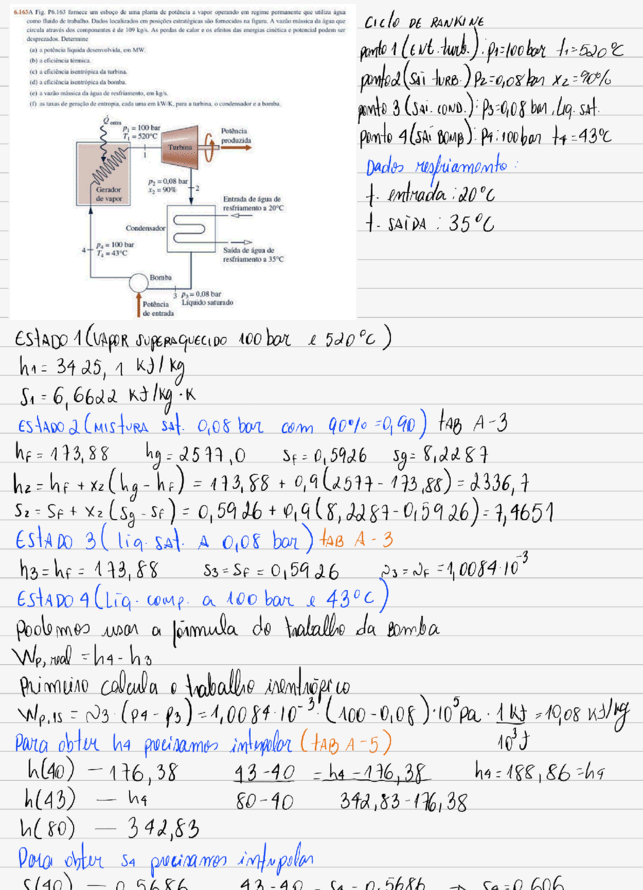 6.163A Fig. P6.163 fornece um esboço de uma planta de potência a vapor operando em regime permanente que utiliza água
como fluido de trabalho. Dados localizados em posições estratégicas são fornecidos na figura. A vazão mássica da água que
circula através dos componentes é de 109 kg/s. As perdas de calor e os efeitos das energias cinética e potencial podem ser
desprezados. Determine
(a) a potência líquida desenvolvida, em MW.
(b) a eficiência térmica.
(c) a eficiência isentrópica da turbina.
(d) a eficiência isentrópica da bomba.
(e) a vazão mássica da água de resfriamento, em kg/s.
(f) as taxas de geração de entropia, cada uma em kW/K, para a turbina, o condensador e a bomba.
CICLO DE RANKINE
ponto 1 (ENT. turb.): P1=100bar t1=520°C
ponto 2 (SAI TURB.) P2=0,08 bar x2=90%
ponto 3 (SAI. COND.): P3=0,08 bar. Liq. Sat.
Ponto 4 (SAI BOMB): P4:100bar t4=43°C
Dados resfriamento:
t. entrada: 20°C
t. SAÍDA: 35°C
Q̇entra
p1 = 100 bar
T1 = 520°C
1
Turbina
Potência
produzida
Gerador
de vapor
p2 = 0,08 bar
x2 = 90%
2
Entrada de água de
resfriamento a 20°C
Condensador
Saída de água de
resfriamento a 35°C
4
p4 = 100 bar
T4 = 43°C
Bomba
3
p3 = 0,08 bar
Líquido saturado
Potência
de entrada
ESTADO 1 (VAPOR SUPERAQUECIDO 100 bar e 520°C)
h1 = 3425,1 kJ/kg
S1 = 6,6622 kJ/kg·K
ESTADO 2 (MISTURA SAT. 0,08 bar com 90% = 0,90) tAB A-3
hF = 173,88 hg = 2577,0 SF = 0,5926 Sg = 8,2287
h2 = hF + x2(hg - hF) = 173,88 + 0,9(2577 - 173,88) = 2336,7
S2 = SF + x2(Sg - SF) = 0,5926 + 0,9(8,2287 - 0,5926) = 7,4651
ESTADO 3 (liq. SAt. A 0,08 bar) tAB A-3
h3 = hF = 173,88 S3 = SF = 0,5926 v3 = vF = 1,0084·10⁻³
ESTADO 4 (Liq. comp. a 100 bar e 43°C)
Podemos usar a fórmula do trabalho da Bomba
Wp,real = h4 - h3
Primeiro calcula o trabalho isentrópico
Wp,is = v3·(P4 - P3) = 1,0084·10⁻³·(100 - 0,08)·10⁵Pa · 1 kJ/10³J = 10,08 kJ/kg
Para obter h4 precisamos interpolar (tAB A-5)
h(40) — 176,38 43-40 = h4 - 176,38 h4 = 188,86 = h4
h(43) — h4 80-40 342,83 - 176,38
h(80) — 342,83
Para obter S4 precisamos interpolar
S(40) — 0,5686 43-40 = S4 - 0,5686 ⇒ S4 = 0,606